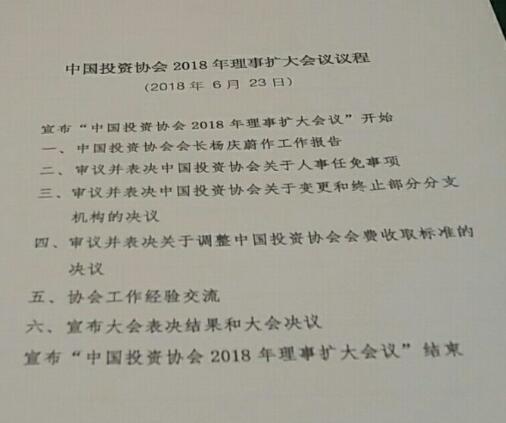 中国投资协会2018年理事扩大会议议程
（2018年 6月 23日）
宣布“中国投资协会2018年理事扩大会议”开始
一、中国投资协会会长杨庆蔚作工作报告
二、审议并表决中国投资协会关于人事任免事项
三、审议并表决中国投资协会关于变更和终止部分分支
机构的决议
四、审议并表决关于调整中国投资协会会费收取标准的
决议
五、协会工作经验交流
六、宣布大会表决结果和大会决议
宣布“中国投资协会2018年理事扩大会议”结束